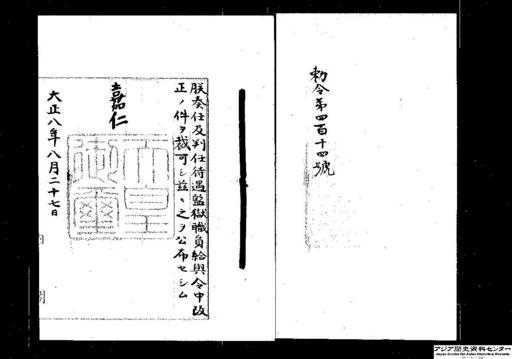 勅令第四百十四號
朕奏任及判任待遇監獄職員給與令中改
正ノ件ヲ裁可シ茲ニ之ヲ公布セシム
嘉仁
天皇御璽
大正八年八月二十七日
内閣
アジア歴史資料センター
Japan Center for Asian Historical Records